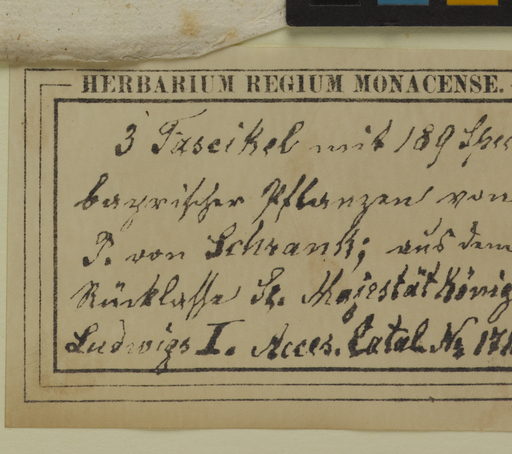 HERBARIUM REGIUM MONACENSE.
3 Fascikel mit 189 Spec
bayrischer Pflanzen von
P. von Schrank; aus dem
Rücklasse Sr. Majestät König
Ludwigs I. Acces. Catal. Nr 171